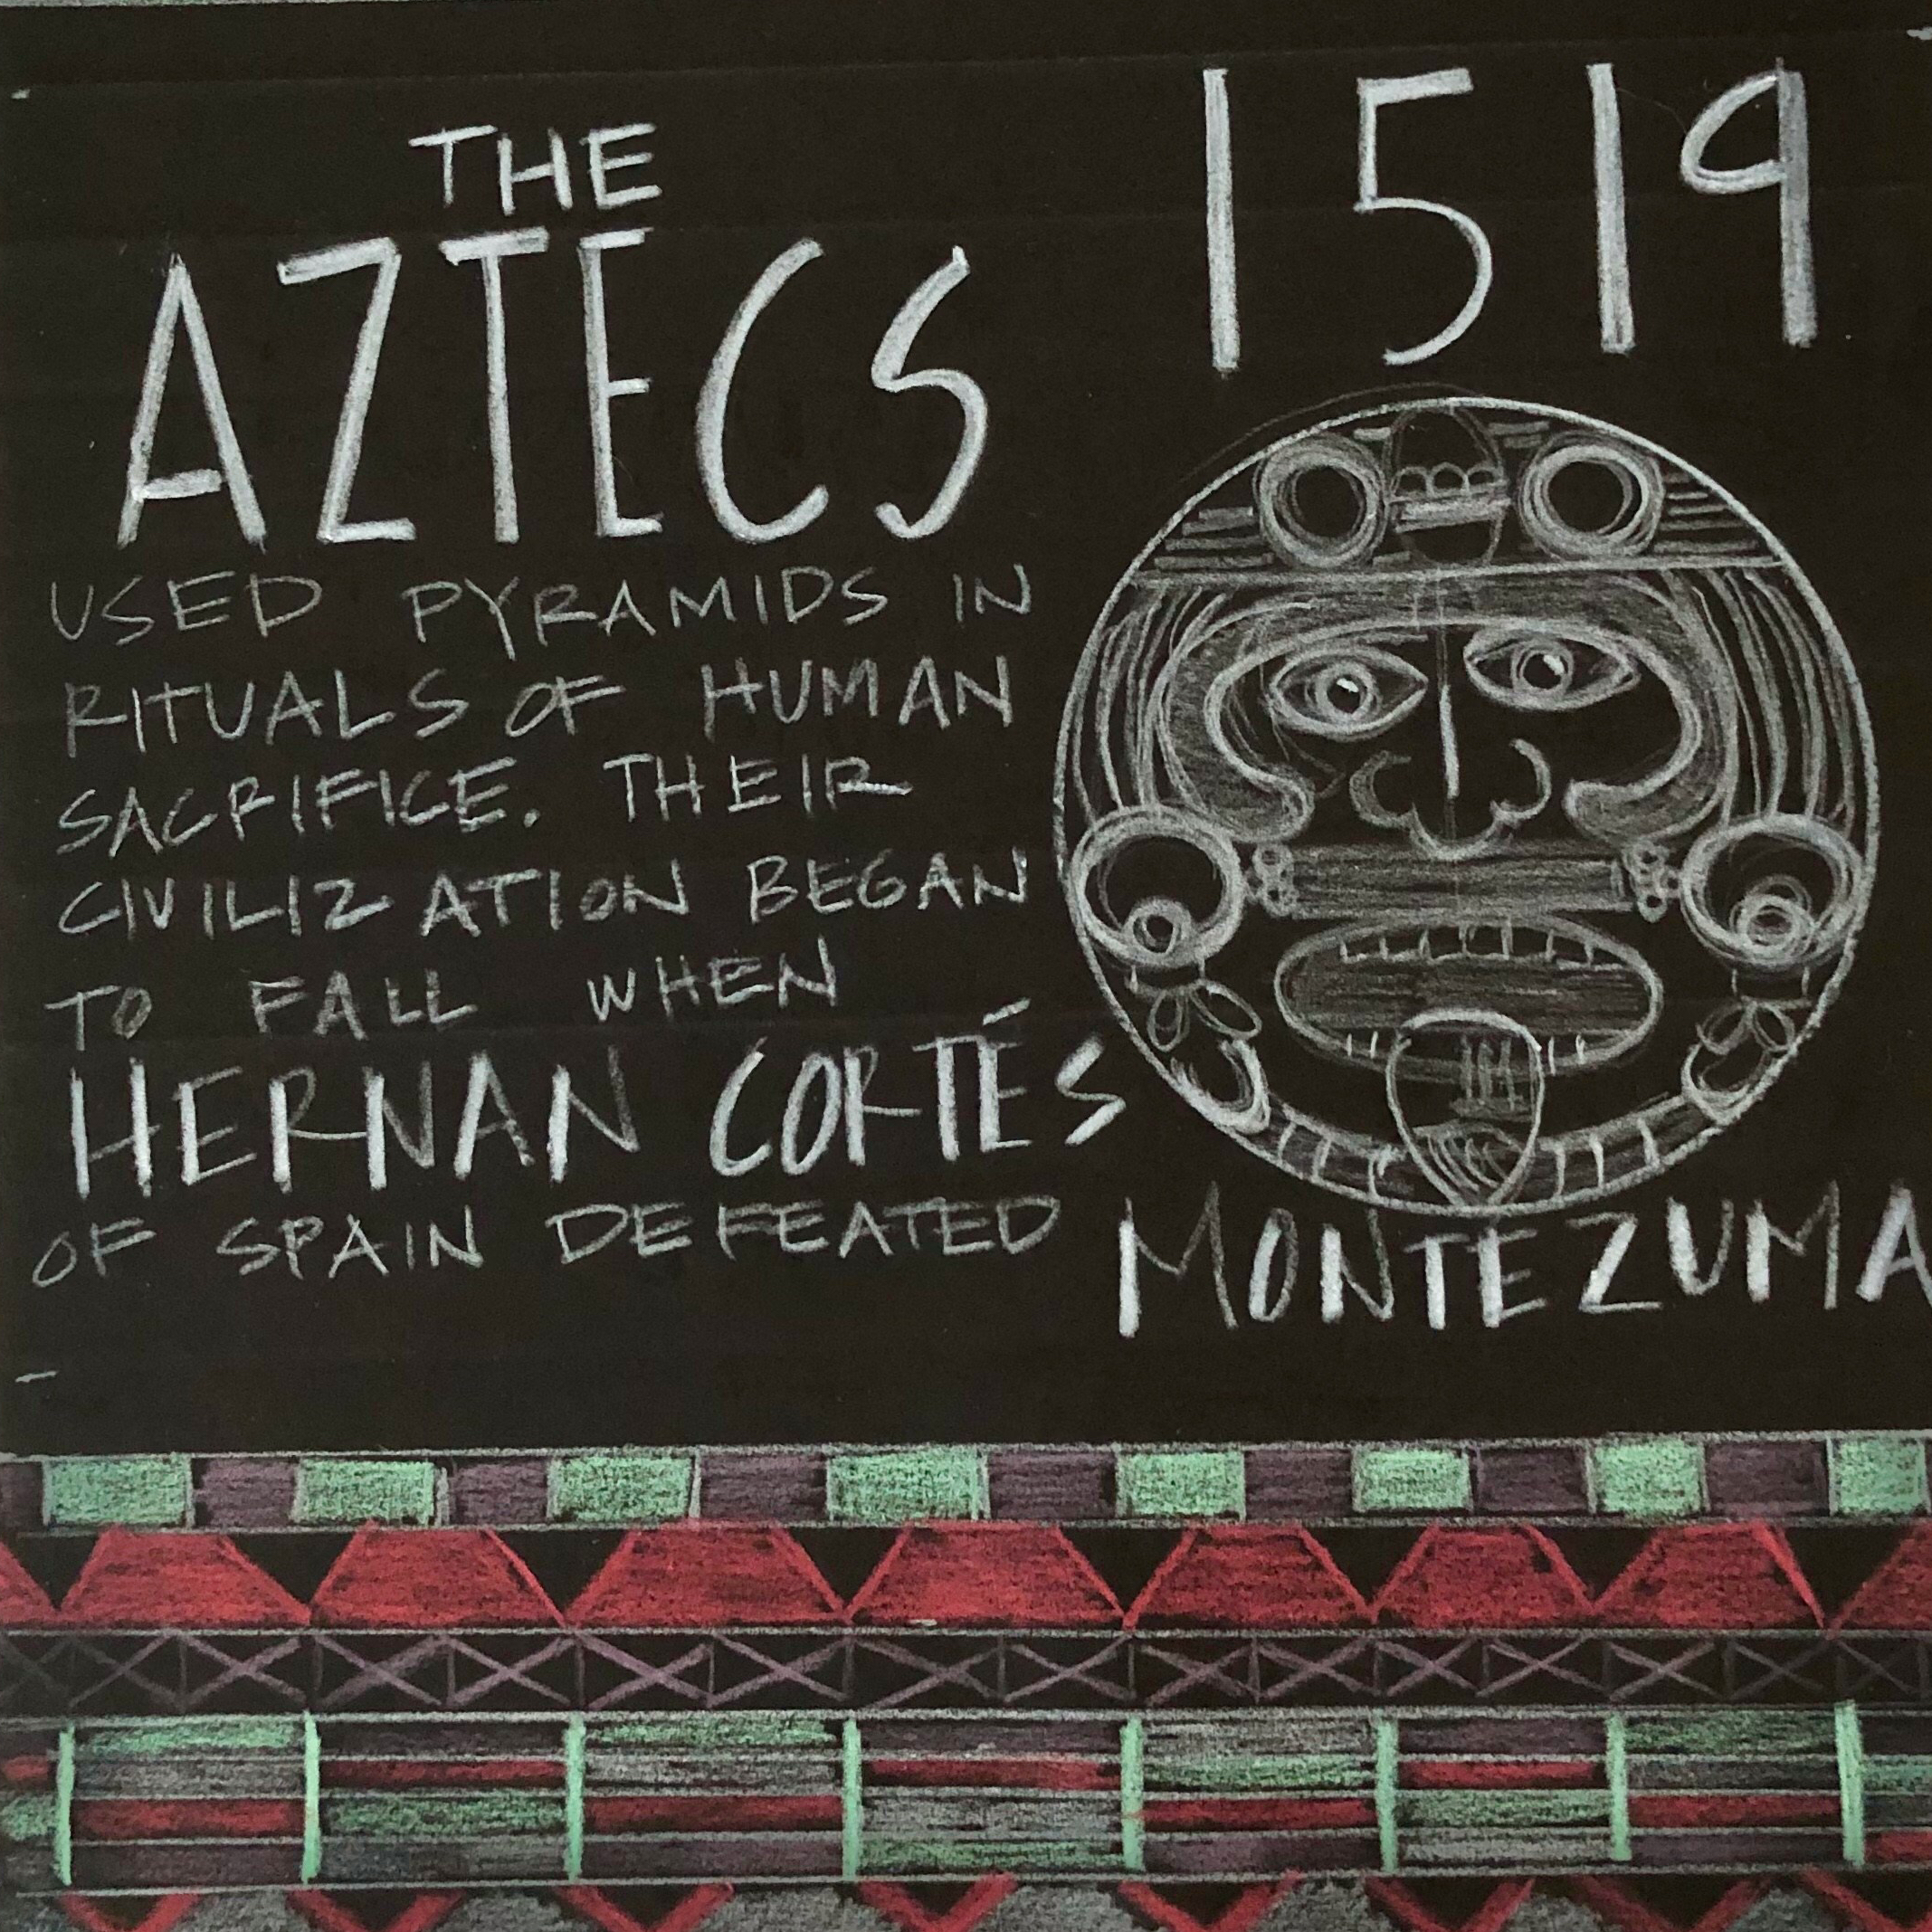 THE
AZTECS
1519
USED PYRAMIDS IN
RITUALS OF HUMAN
SACRIFICE. THEIR
CIVILIZATION BEGAN
TO FALL WHEN
HERNAN CORTÉS
OF SPAIN DEFEATED
MONTEZUMA